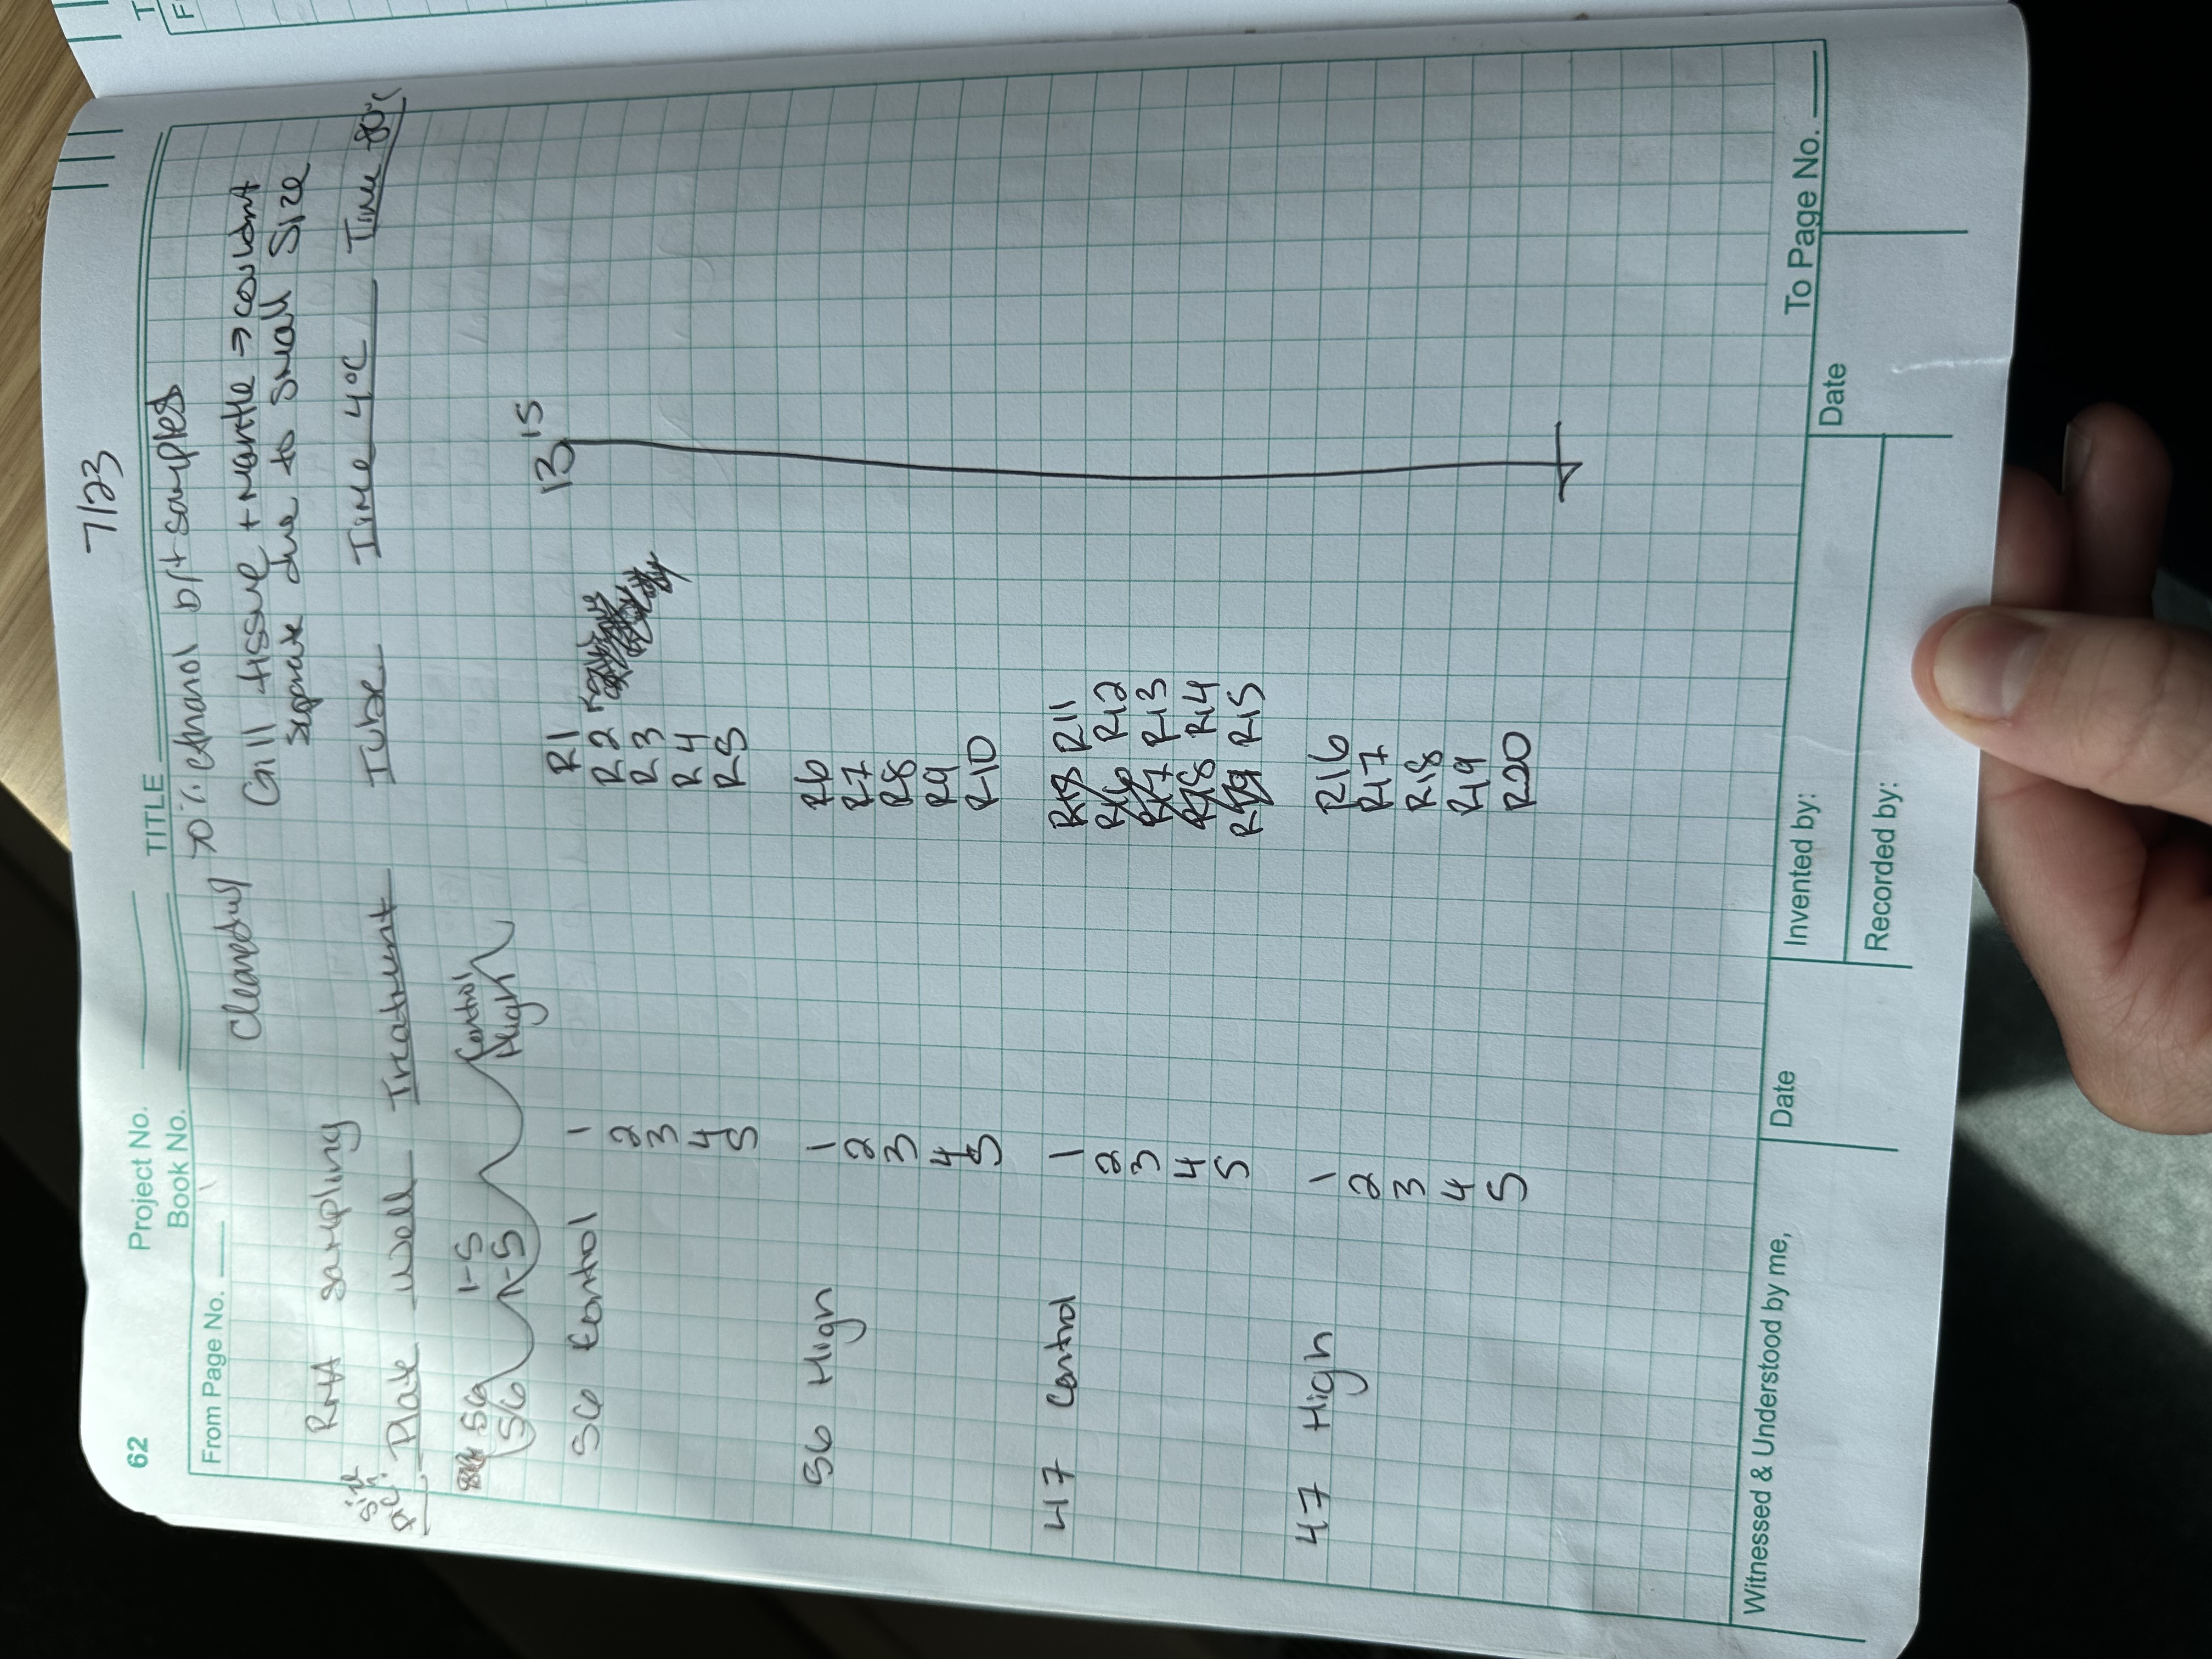 7/23
62 Project No.
Book No.
TITLE
From Page No.
Cleaned w/ 70% ethanol b/t samples
Gill tissue + mantle → couldnt
separate due to small size
RNA sampling
size
pic?
Plate Well Treatment Tube Time 4°C Time -80°C
56 1-5 Control
56 1-5 High
56 Control 1 R1 13 15
2 R2
3 R3
4 R4
5 R5
56 High 1 R6
2 R7
3 R8
4 R9
5 R10
47 Control 1 R11
2 R16 R12
3 R17 R13
4 R18 R14
5 R19 R15
47 High 1 R16
2 R17
3 R18
4 R19
5 R20
Witnessed & Understood by me,
Date
Invented by:
Recorded by:
Date
To Page No.